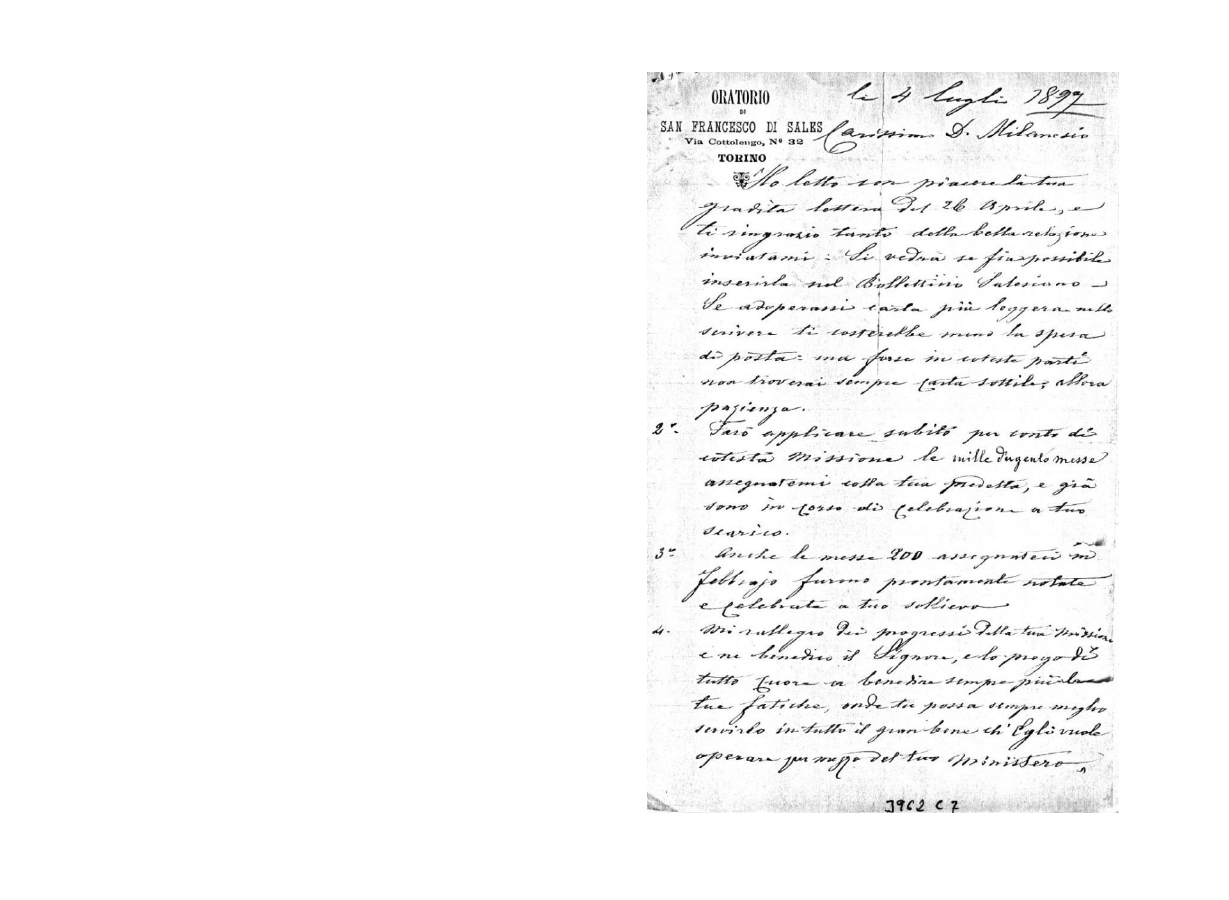 ORATORIO
DI
SAN FRANCESCO DI SALES
Via Cottolengo, Nº 32
TORINO
li 4 luglio 1897
Carissimo D. Milanesio
Ho letto con piacere la tua
gradita lettera del 26 Aprile, e
ti ringrazio tanto della bella relazione
inviatami: Si vedrà se fia possibile
inserirla nel Bollettino Salesiano –
Se adoperassi carta più leggera nello
scrivere ti costerebbe meno la spesa
di posta: ma forse in coteste parti
non troverai sempre carta sottile; allora
pazienza.
2º. Farò applicare subito per conto di
cotesta Missione le mille dugento messe
assegnatemi colla tua predetta, e già
sono in corso di celebrazione a tuo
scarico.
3º Anche le messe 200 assegnateci in
Febbrajo furono prontamente notate
e celebrate a tuo sollievo
4. Mi rallegro dei progressi della tua Missione
e ne benedico il Signore, e lo prego di
tutto cuore a benedire sempre più le
tue fatiche, onde tu possa sempre meglio
servirlo in tutto il gran bene ch'Egli vuole
operare per mezzo del tuo Ministero
3902 C 7